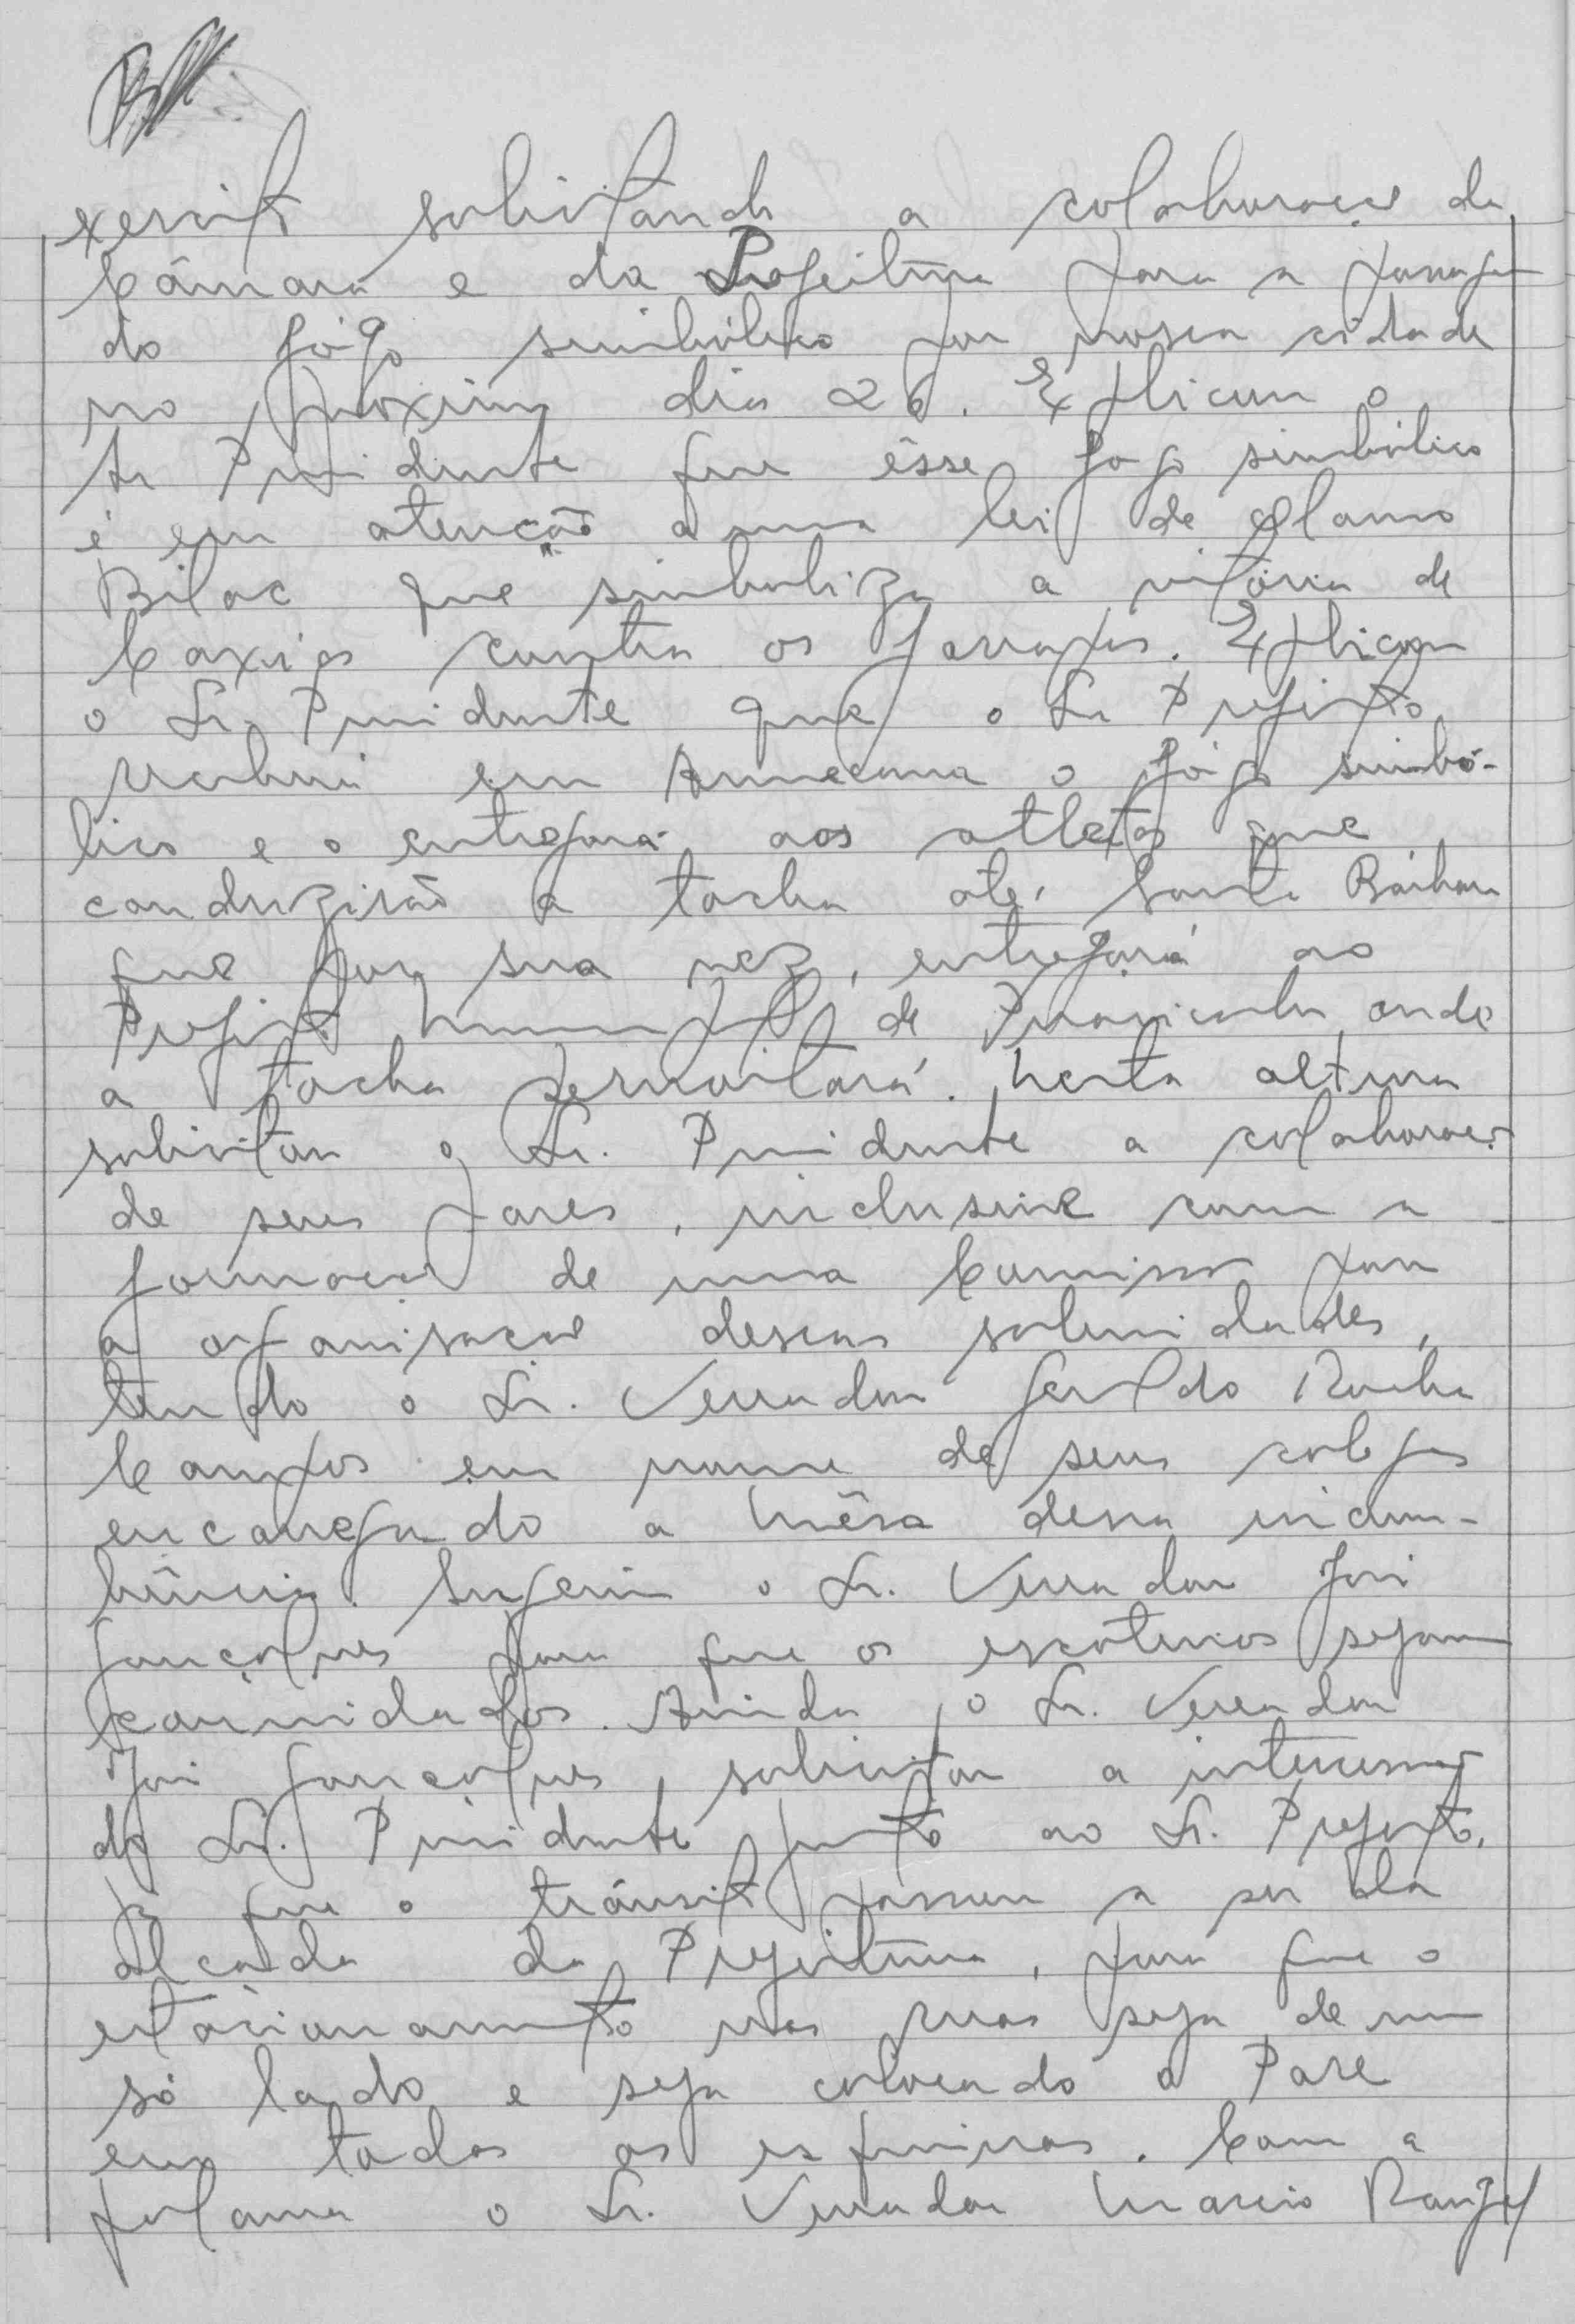 exercito solicitando a colaboração da
Câmara e da Prefeitura para a passagem
do fôgo simbólico por nossa cidade
no proximo dia 26. Explicou o
Sr Presidente que êsse fogo simbólico
é em atenção a uma lei de Olavo
Bilac que simboliza a vitória de
Caxias contra os farrapos. Explicou
o Sr. Presidente que o Sr Prefeito
receberá em Americana o fôgo simbó-
lico e o entregará aos atletas que
conduzirão a tocha até Santa Bárbara
que por sua vez, entregará ao
Prefeito Municipal de Piracicaba, onde
a tocha pernoitará. Nesta altura
solicitou o Sr. Presidente a colaboração
de seus pares, inclusive com a
formação de uma Comissão para
a organisação dessas solenidades,
tendo o Sr. Vereador Geraldo Rocha
Campos em nome de seus colegas
encarregado a Mêsa dessa incum-
bência. Sugeriu o Sr. Vereador José
Gonçalves para que os escoteiros sejam
convidados. Ainda o Sr. Vereador
José Gonçalves, solicitou a intercessão
do Sr. Presidente junto ao Sr. Prefeito,
já que o trânsito passou a ser da
alçada da Prefeitura, para que o
estacionamento nas ruas seja de um
só lado e seja colocado o Pare
em todas as esquinas. Com a
palavra o Sr. Vereador Marcio Rangel